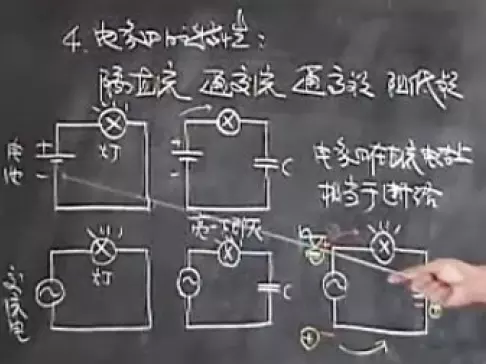 4.电容的特性:
隔直流 通交流 通高频 阻低频
电池
+
-
灯
+
-
C
电容在直流电路上
相当于断路
交流电
灯
亮一下灭
C
+
+